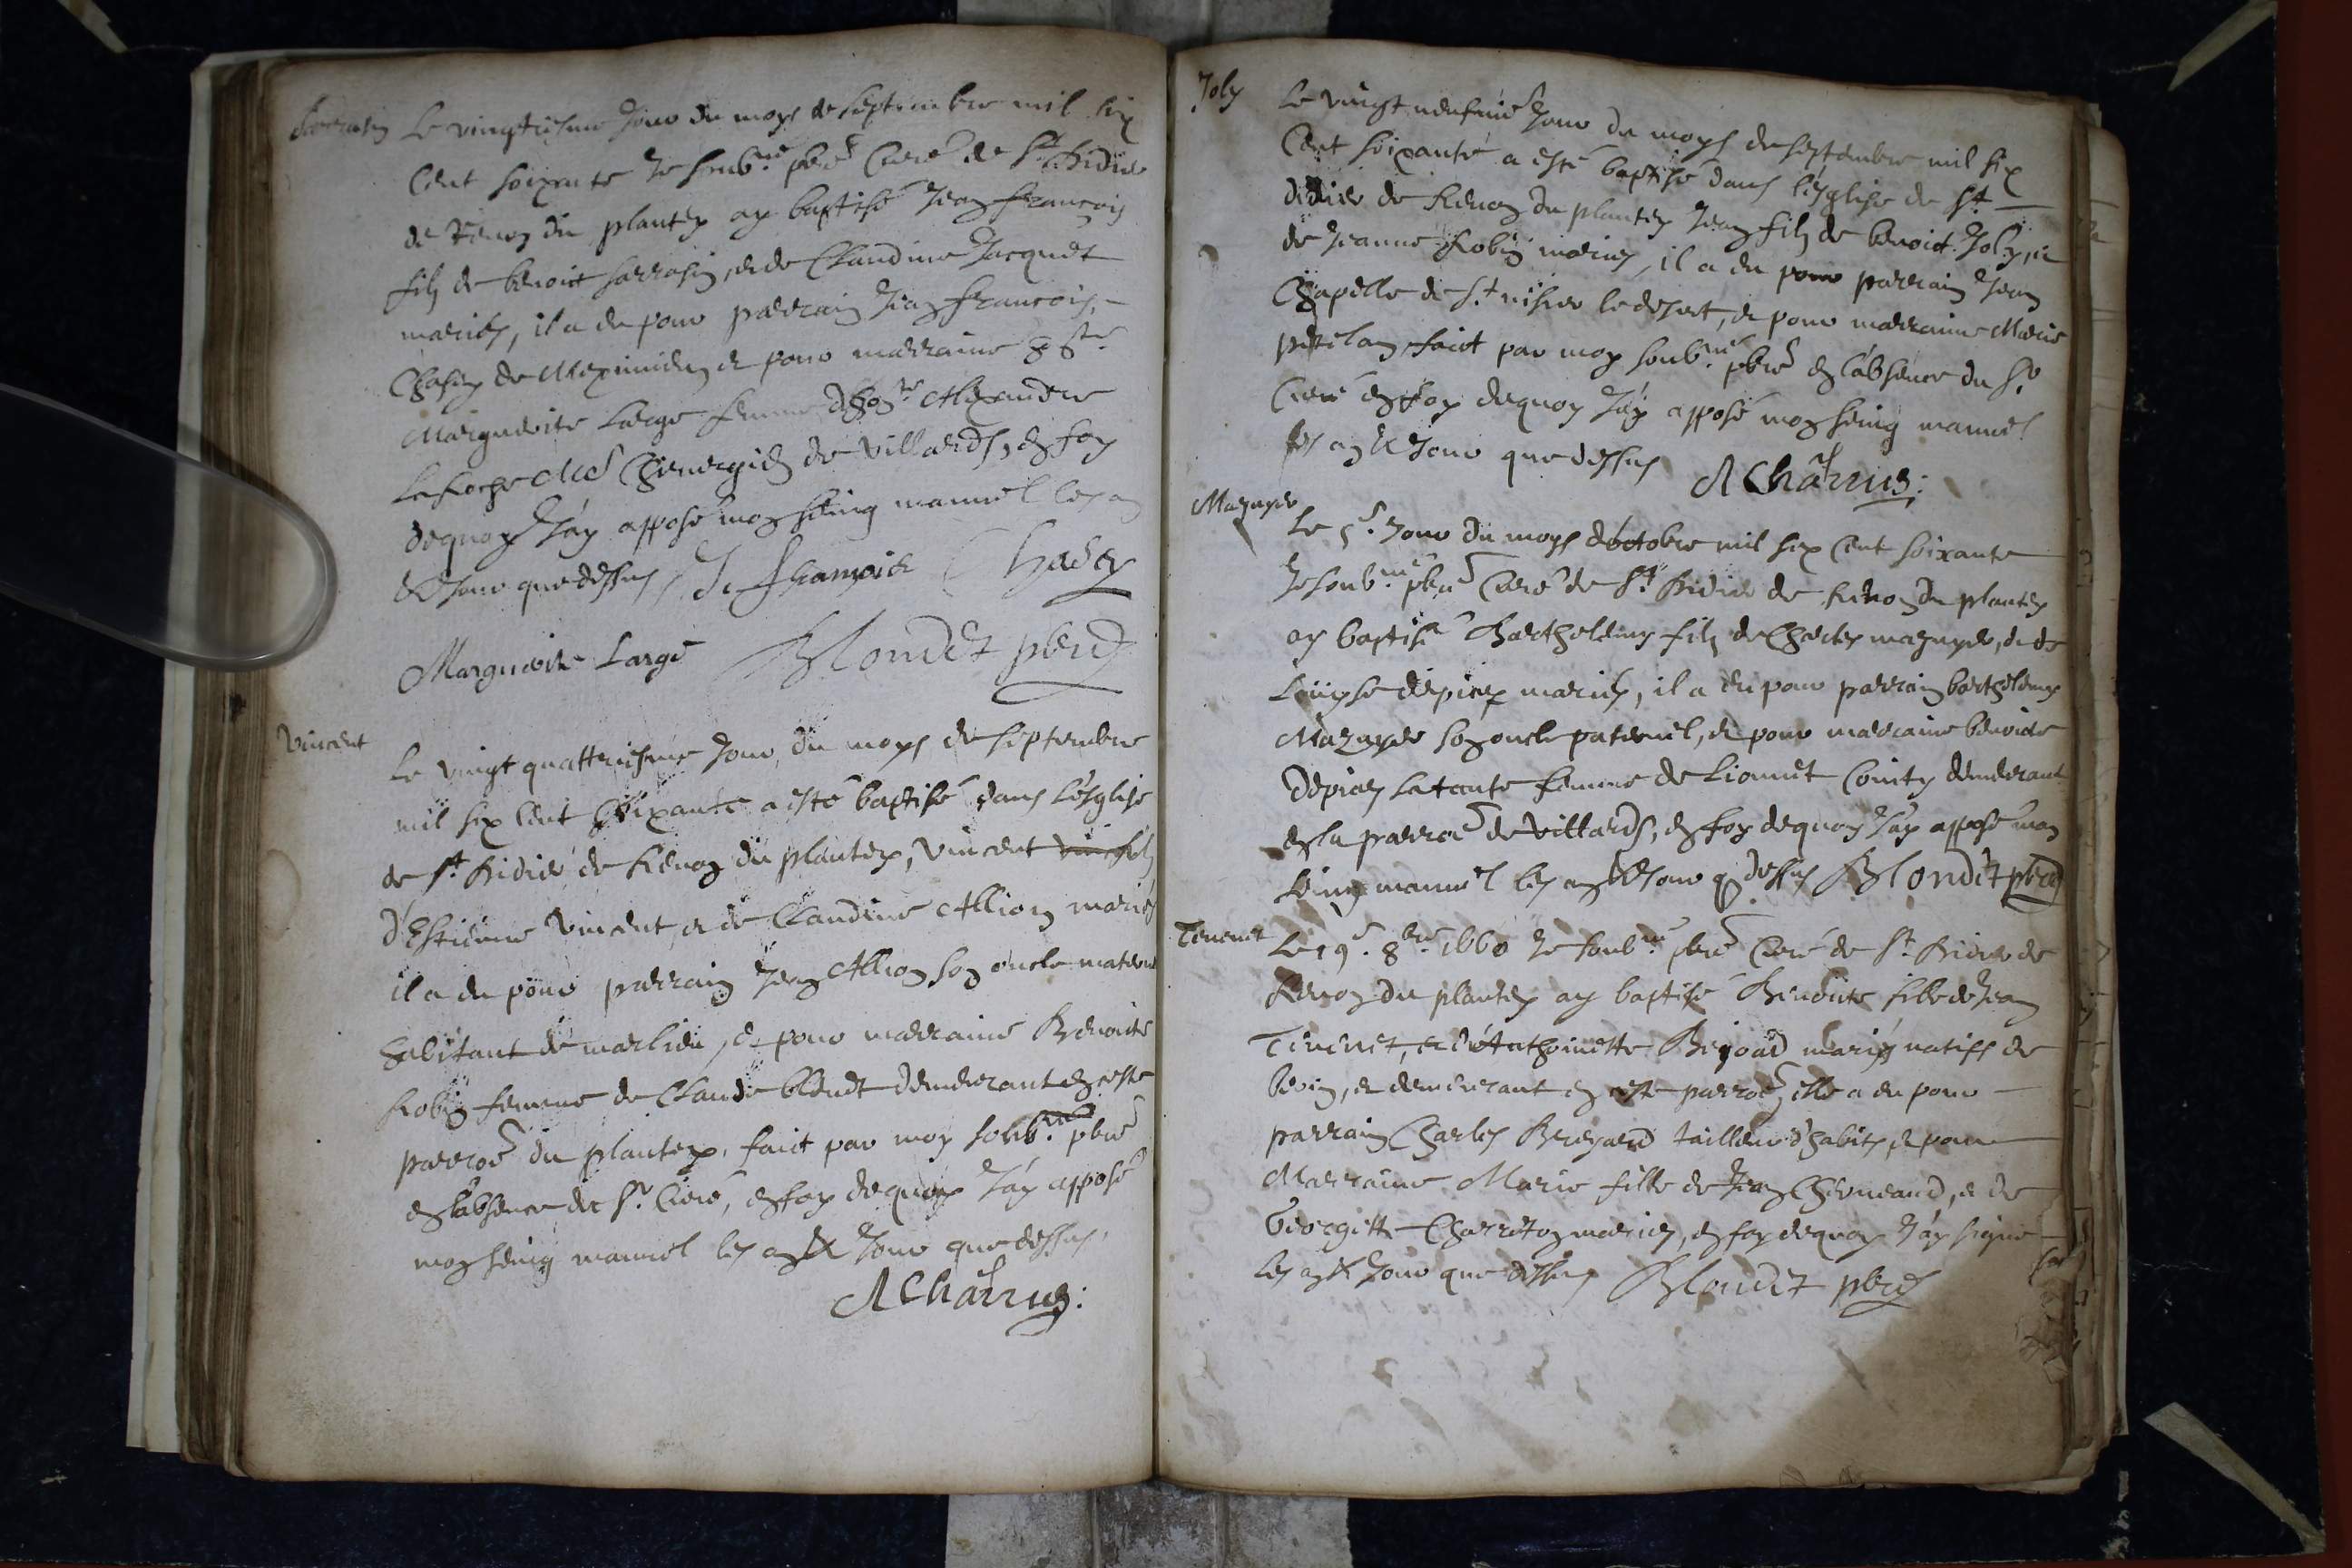 Sarrasin
Le vingtiesme Jour du moys de septembre mil six
Cent soixante Je soub.né pbre Curé de St. Didier
de Renon du plantey ay baptisé Jean françois
fils de benoict sarrasin, et de Claudine Jacquet
mariés, il a eu pour parrain Jean françois
Chasey de Meximieu et pour marraine
Marguerite Large femme d'hon.te Alexandre
LaRoche Me Chirurgien de villards, en foy
dequoy J'ay apposé mon seing manuel les an
& Jour que dessus J. françois Chasey
Marguerite Large Blondet pbre
Vincent
Le vingt quattriesme Jour du moys de septembre
mil six Cent soixante a esté baptisé dans l'esglise
de St. Didier de Renon du plantey, vincent fils
d'Estienne Vincent, et de Claudine Allion mariés
il a eu pour parrain Jean Allion son oncle maternel
habitant de marlieu, et pour marraine Benoite
Robin femme de Claude demeurant en ceste
parroe du plantey, faict par moy soub.né pbre
en l'absence de Sr. Curé, en foy dequoy J'ay apposé
mon seing manuel les an & Jour que dessus.
A Charrus:
Joly
Le vingt neufme Jour du moys de septembre mil six
Cent soixante a esté baptisé dans l'esglise de St.
didier de Renon du plantey Jean fils de benoict Joly, et
de Jeanne Robin mariés, il a eu pour parrain Jean
Chapelle de St. nisier le desert, et pour marraine Marie
faict par moy soub.né pbre en l'absence du Sr.
Curé en foy dequoy J'ay apposé mon seing manuel
les an & Jour que dessus A Charrus:
Mazuyer
Le 5e. Jour du moys d'octobre mil six Cent soixante
Je soub.né pbre Curé de St. Didier de Renon du plantey
ay baptisé Barthelemy fils de Charles mazuyer, et de
Louyse depiez mariés, il a eu pour parrain barthelemy
Mazuyer son oncle paternel, et pour marraine benoite
Depiez sa tante femme de Lionnet demeurant
en la parroe de villards, en foy dequoy J'ay apposé mon
seing manuel les an & Jour q dessus Blondet pbre
Tenenet
Le 19e. 8bre 1660 Je soub.né pbre Curé de St. Didier de
Renon du plantey ay baptisé Benoite fille de Jean
Tenenet, et d'Anthoinette mariés natifs de
et demeurant en ceste parroe, elle a eu pour
parrain Charles tailleur d'habits, et pour
Marraine Marie fille de Jean et de
Georgette Charreton mariés, en foy dequoy J'ay signé
les an & Jour que dessus Blondet pbre